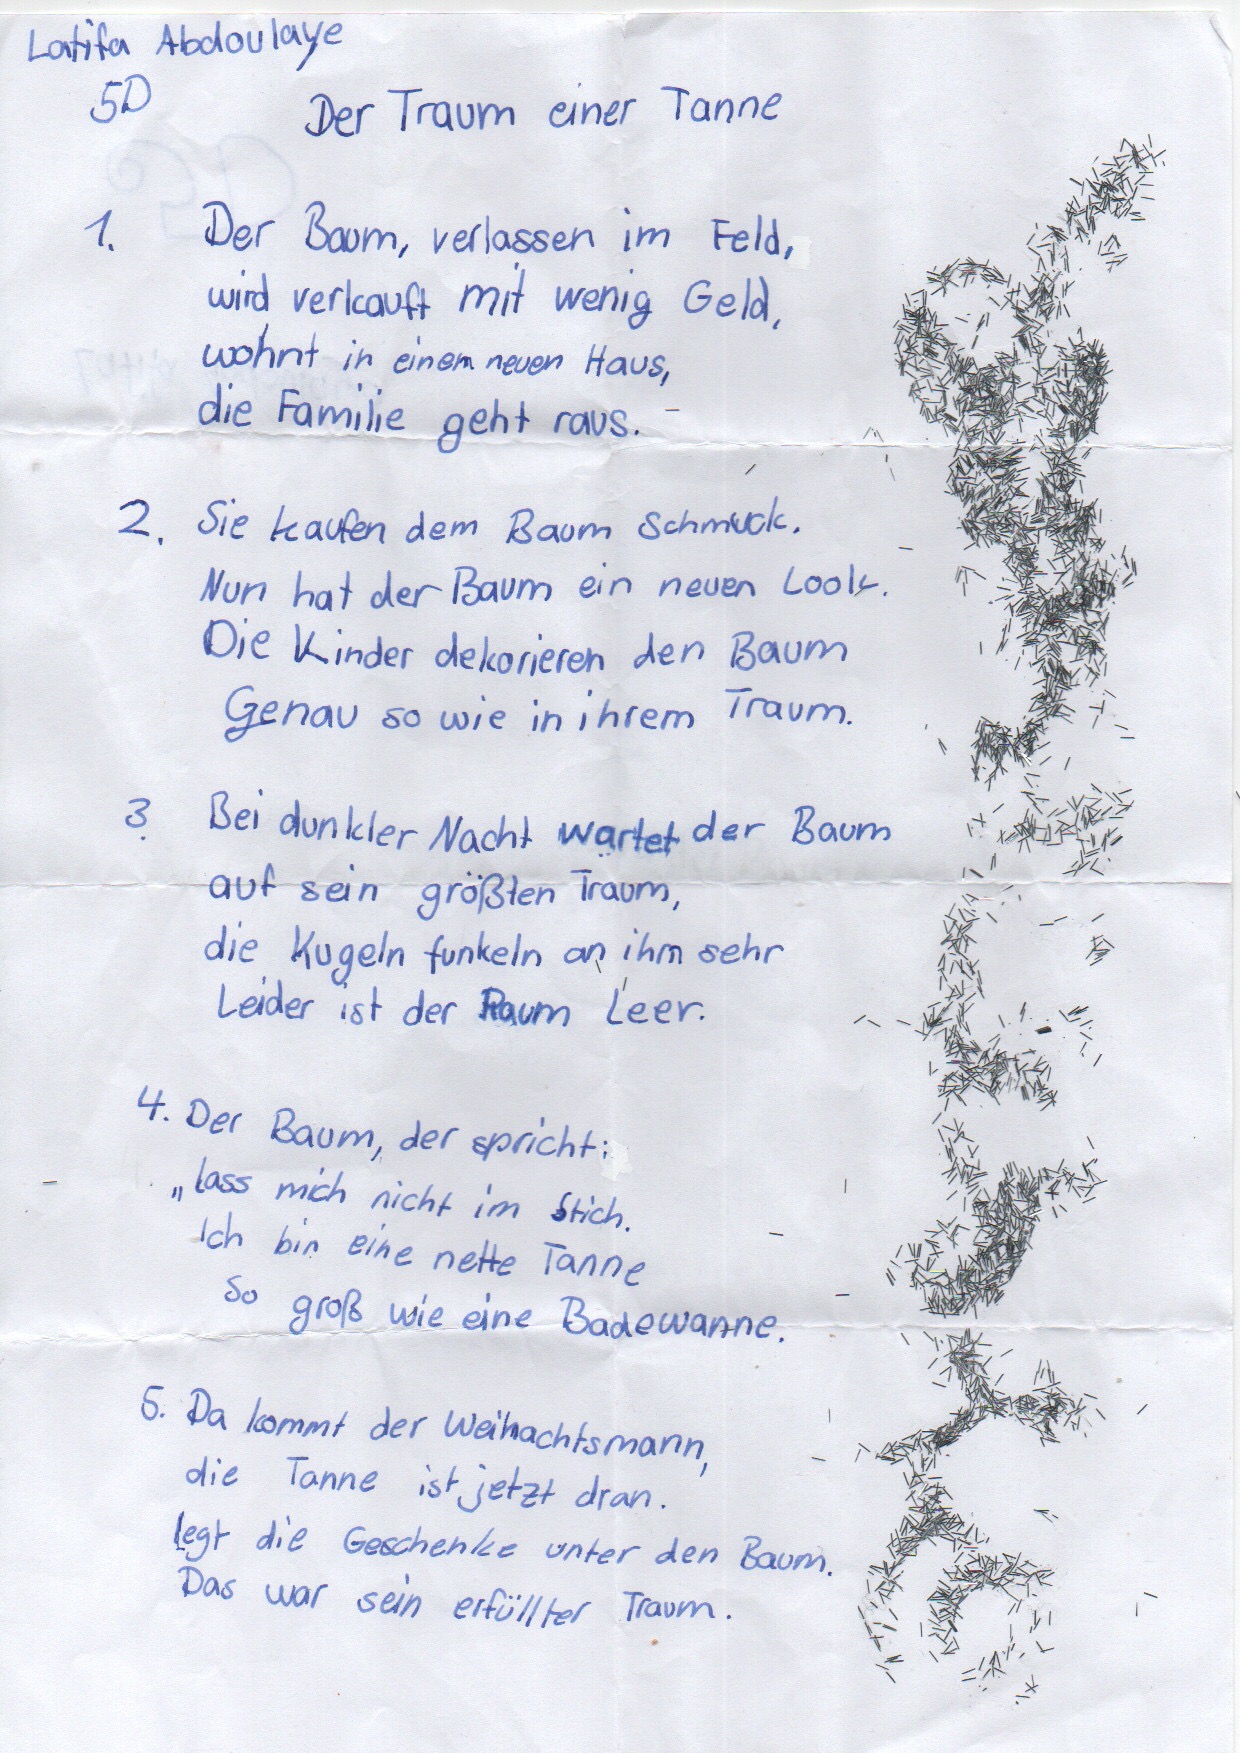 Latifa Abdoulaye
5D
Der Traum einer Tanne
1. Der Baum, verlassen im Feld,
wird verkauft mit wenig Geld,
wohnt in einem neuen Haus,
die Familie geht raus.
2. Sie kaufen dem Baum Schmuck.
Nun hat der Baum ein neuen Look.
Die Kinder dekorieren den Baum
Genau so wie in ihrem Traum.
3. Bei dunkler Nacht wartet der Baum
auf sein größten Traum,
die Kugeln funkeln an ihm sehr
Leider ist der Raum Leer.
4. Der Baum, der spricht:
„lass mich nicht im Stich.
Ich bin eine nette Tanne
So groß wie eine Badewanne.
5. Da kommt der Weihnachtsmann,
die Tanne ist jetzt dran.
legt die Geschenke unter den Baum.
Das war sein erfüllter Traum.